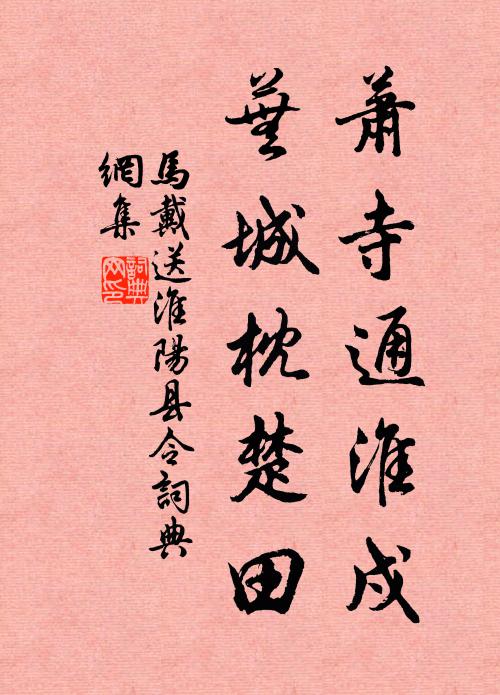 蕭寺通淮戍
蕪城枕楚田
馬戴送淮陽县令詞典
網集
詞典
网印